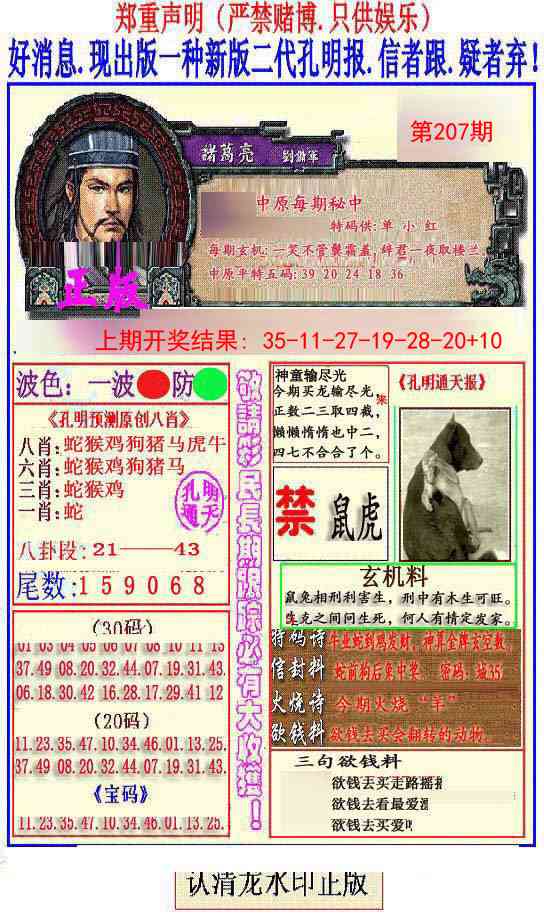 郑重声明（严禁赌博.只供娱乐）
好消息.现出版一种新版二代孔明报.信者跟.疑者弃！
第207期
諸葛亮
中原每期秘中
特码供:单 小 红
每期玄机:一笑不管
一夜取楼兰.
中原平特五码:39 20 24 18 36
正版
上期开奖结果：35-11-27-19-28-20+10
波色：一波 防
《孔明预测原创八肖》
八肖:蛇猴鸡狗猪马虎牛
六肖:蛇猴鸡狗猪马
三肖:蛇猴鸡
一肖:蛇
孔明
通天
八卦段:21——43
尾数:159068
(30码)
01 03 04 05 06 07 08 10 11 13
37.49 08.20.32.44.07.19.31.43.
06.18.30.42 16.28.17.29.41 12
(20码)
11.23.35.47.10.34.46.01.13.25.
37.49 08.20.32.44.07.19.31.43.
《宝码》
11.23.35.47.10.34.46.01.13.25.
敬請彩民長期跟踪必有大收獲！
神童输尽光
今期买龙输尽光,
正数二三取四藏,
懒懒惰惰也中二,
四七不合合了个。
《孔明通天报》
禁 鼠虎
玄机料
鼠兔相刑利害生，刑中有木生可旺。
生克之间问生死，何人有情定发家。
特码诗 牛业蛇到鸡发财，神算金牌玄空数。
信封料 蛇前狗后集中奖. 密码：城35
火烧诗 今期火烧“羊”
欲钱料 欲钱去买会翻转的动物。
三句欲钱料
欲钱去买走路摇
欲钱去看最爱
欲钱去买爱
认清龙水印正版